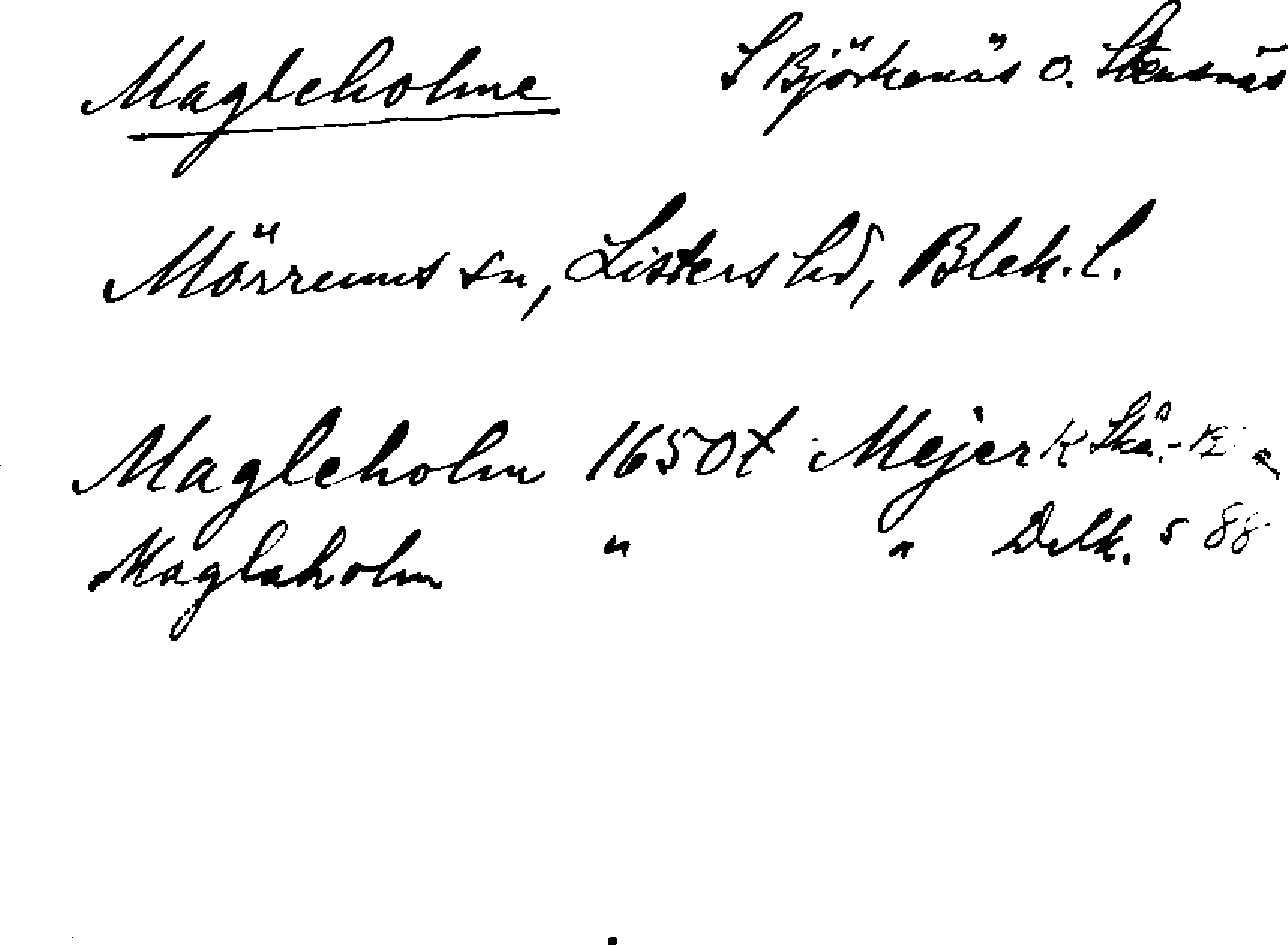 Magleholme S Björkenäs o. Stensnäs
Mörrums sn, Listers hd, Blek. l.
Magleholm 1650t Mejer K Skå.-
Maglaholm " " Delk. 5 88